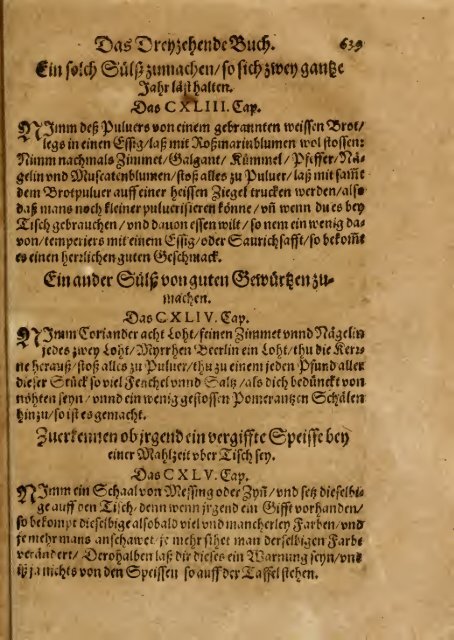 Das Dreyzehende Buch. 639
Ein solch Sülß zumachen/ so sich zwey gantze
Jahr läst halten.
Das CXLIII. Cap.
NImm deß Puluers von einem gebrannten weissen Brot/
legs in einen Essig/ laß mit Roßmarinblumen wol stossen:
Nimm nachmals Zimmet/ Galgant/ Kümmel/ Pfeffer/ Nä-
gelin vnd Muscatenblumen/ stoß alles zu Puluer/ laß mit sampt
dem Brotpuluer auff einer heissen Ziegel trucken werden/ also
daß mans noch kleiner puluerisieren könne/ vñ wenn du es bey
Tisch gebrauchen/ vnd dauon essen wilt/ so nem ein wenig da-
von/ temperiers mit einem Essig/ oder Saurichsafft/ so bekomt
es einen herzlichen guten Geschmack.
Ein ander Sülß von guten Gewürtzen zu-
machen.
Das CXLIV. Cap.
NImm Coriander acht Loht/ feinen Zimmet vnnd Nägelin
jedes zwey Loht/ Myrrhen Beerlin ein Loht/ thu die Ker-
ne herauß/ stoß alles zu Puluer/ thu zu einem jeden Pfund aller
dieser Stück so viel Fenchel vnnd Saltz/ als dich bedünckt von
nöhten seyn/ vnnd ein wenig gestossen Pomerantzen Schälen
hinzu/ so ist es gemacht.
Zuerkennen ob jrgend ein vergiffte Speisse bey
einer Mahlzeit vber Tisch sey.
Das CXLV. Cap.
NImm ein Schaal von Messing oder Zyñ/ vnd setz dieselbi-
ge auff den Tisch/ denn wenn jrgend ein Gifft vorhanden/
so bekompt dieselbige alsobald viel vnd mancherley Farben/ vnd
je mehr mans anschawet/ je mehr sihet man derselbigen Farbe
verändert/ Derohalben laß dir dieses ein Warnung seyn/ vnd
iß ja nichts von den Speissen so auff der Taffel stehen.